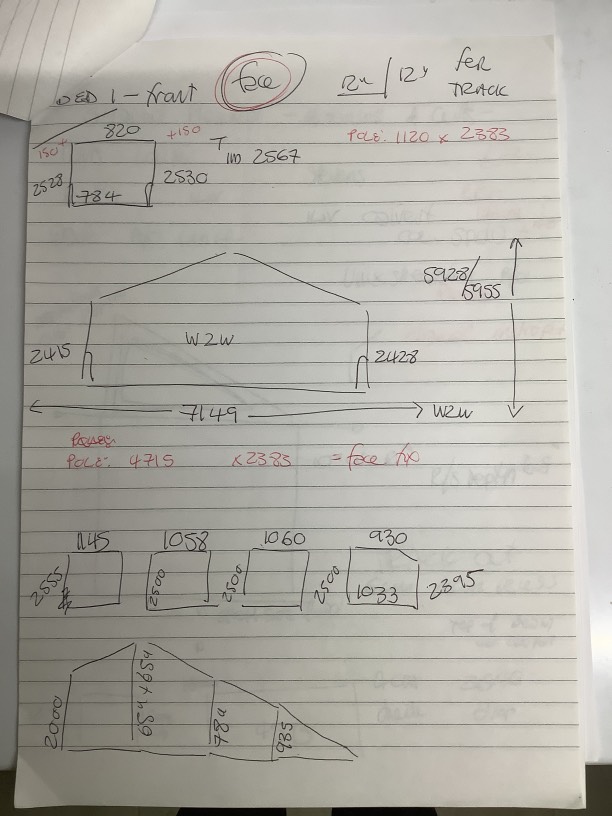 BED 1 - front face 12" / 12" for
TRACK
820
150+ +150
POLE: 1120 x 2383
2528 784 2530 Tim 2567
5928/
5955
W2W
2415 2428
7149 W2W
POLE: 4715 x2383 = face fix
1145 1058 1060 930
2555 2500 2500 2500 1033 2395
2000 784 985